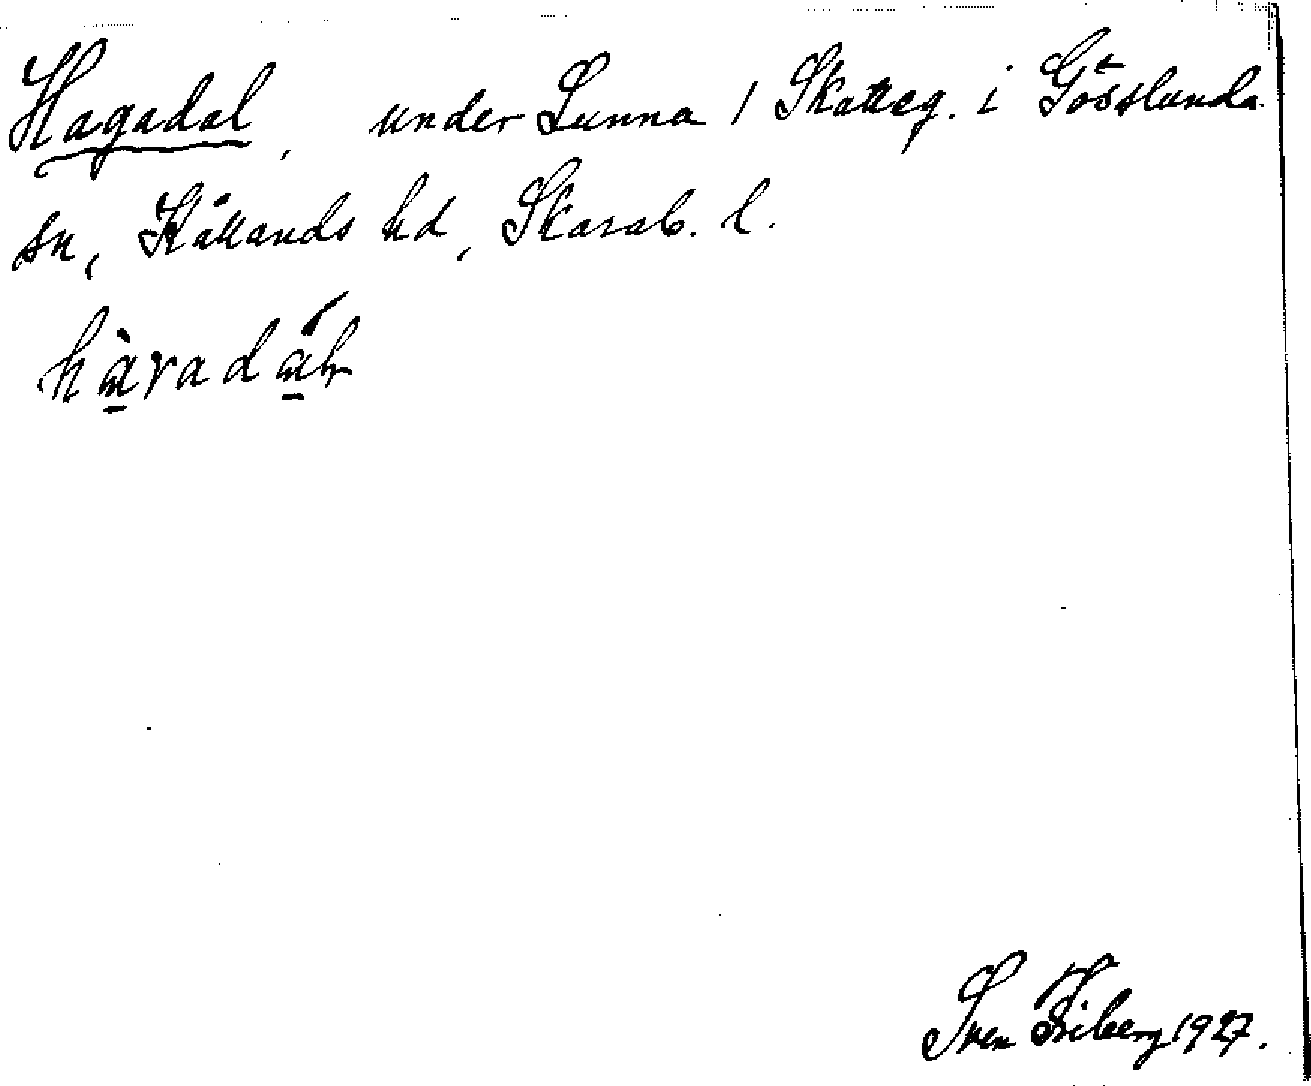 Hagadal, under Sunna 1 Skatteg. i Gösslunda
sn, Kållands hd, Skarab. l.
hàradál
Sven Friberg 1927.